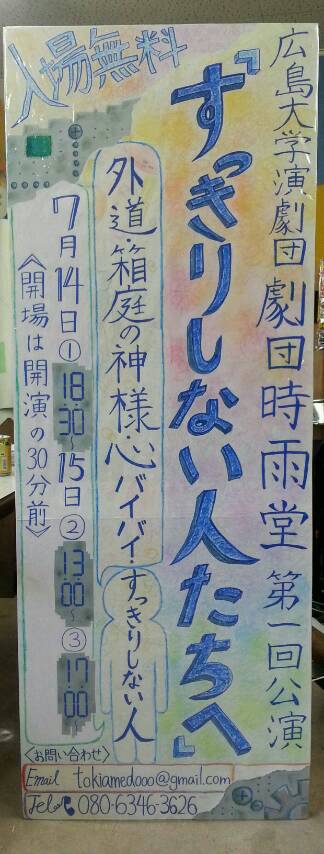 入場無料
広島大学演劇団 劇団時雨堂 第一回公演
『すっきりしない人たちへ』
外道箱庭の神様・心バイバイ・すっきりしない人
7月14日①18:30〜15日②13:00〜③17:00
《開場は開演の30分前》
〈お問い合わせ〉
Email tokiamedooo@gmail.com
Tel 080-6346-3626